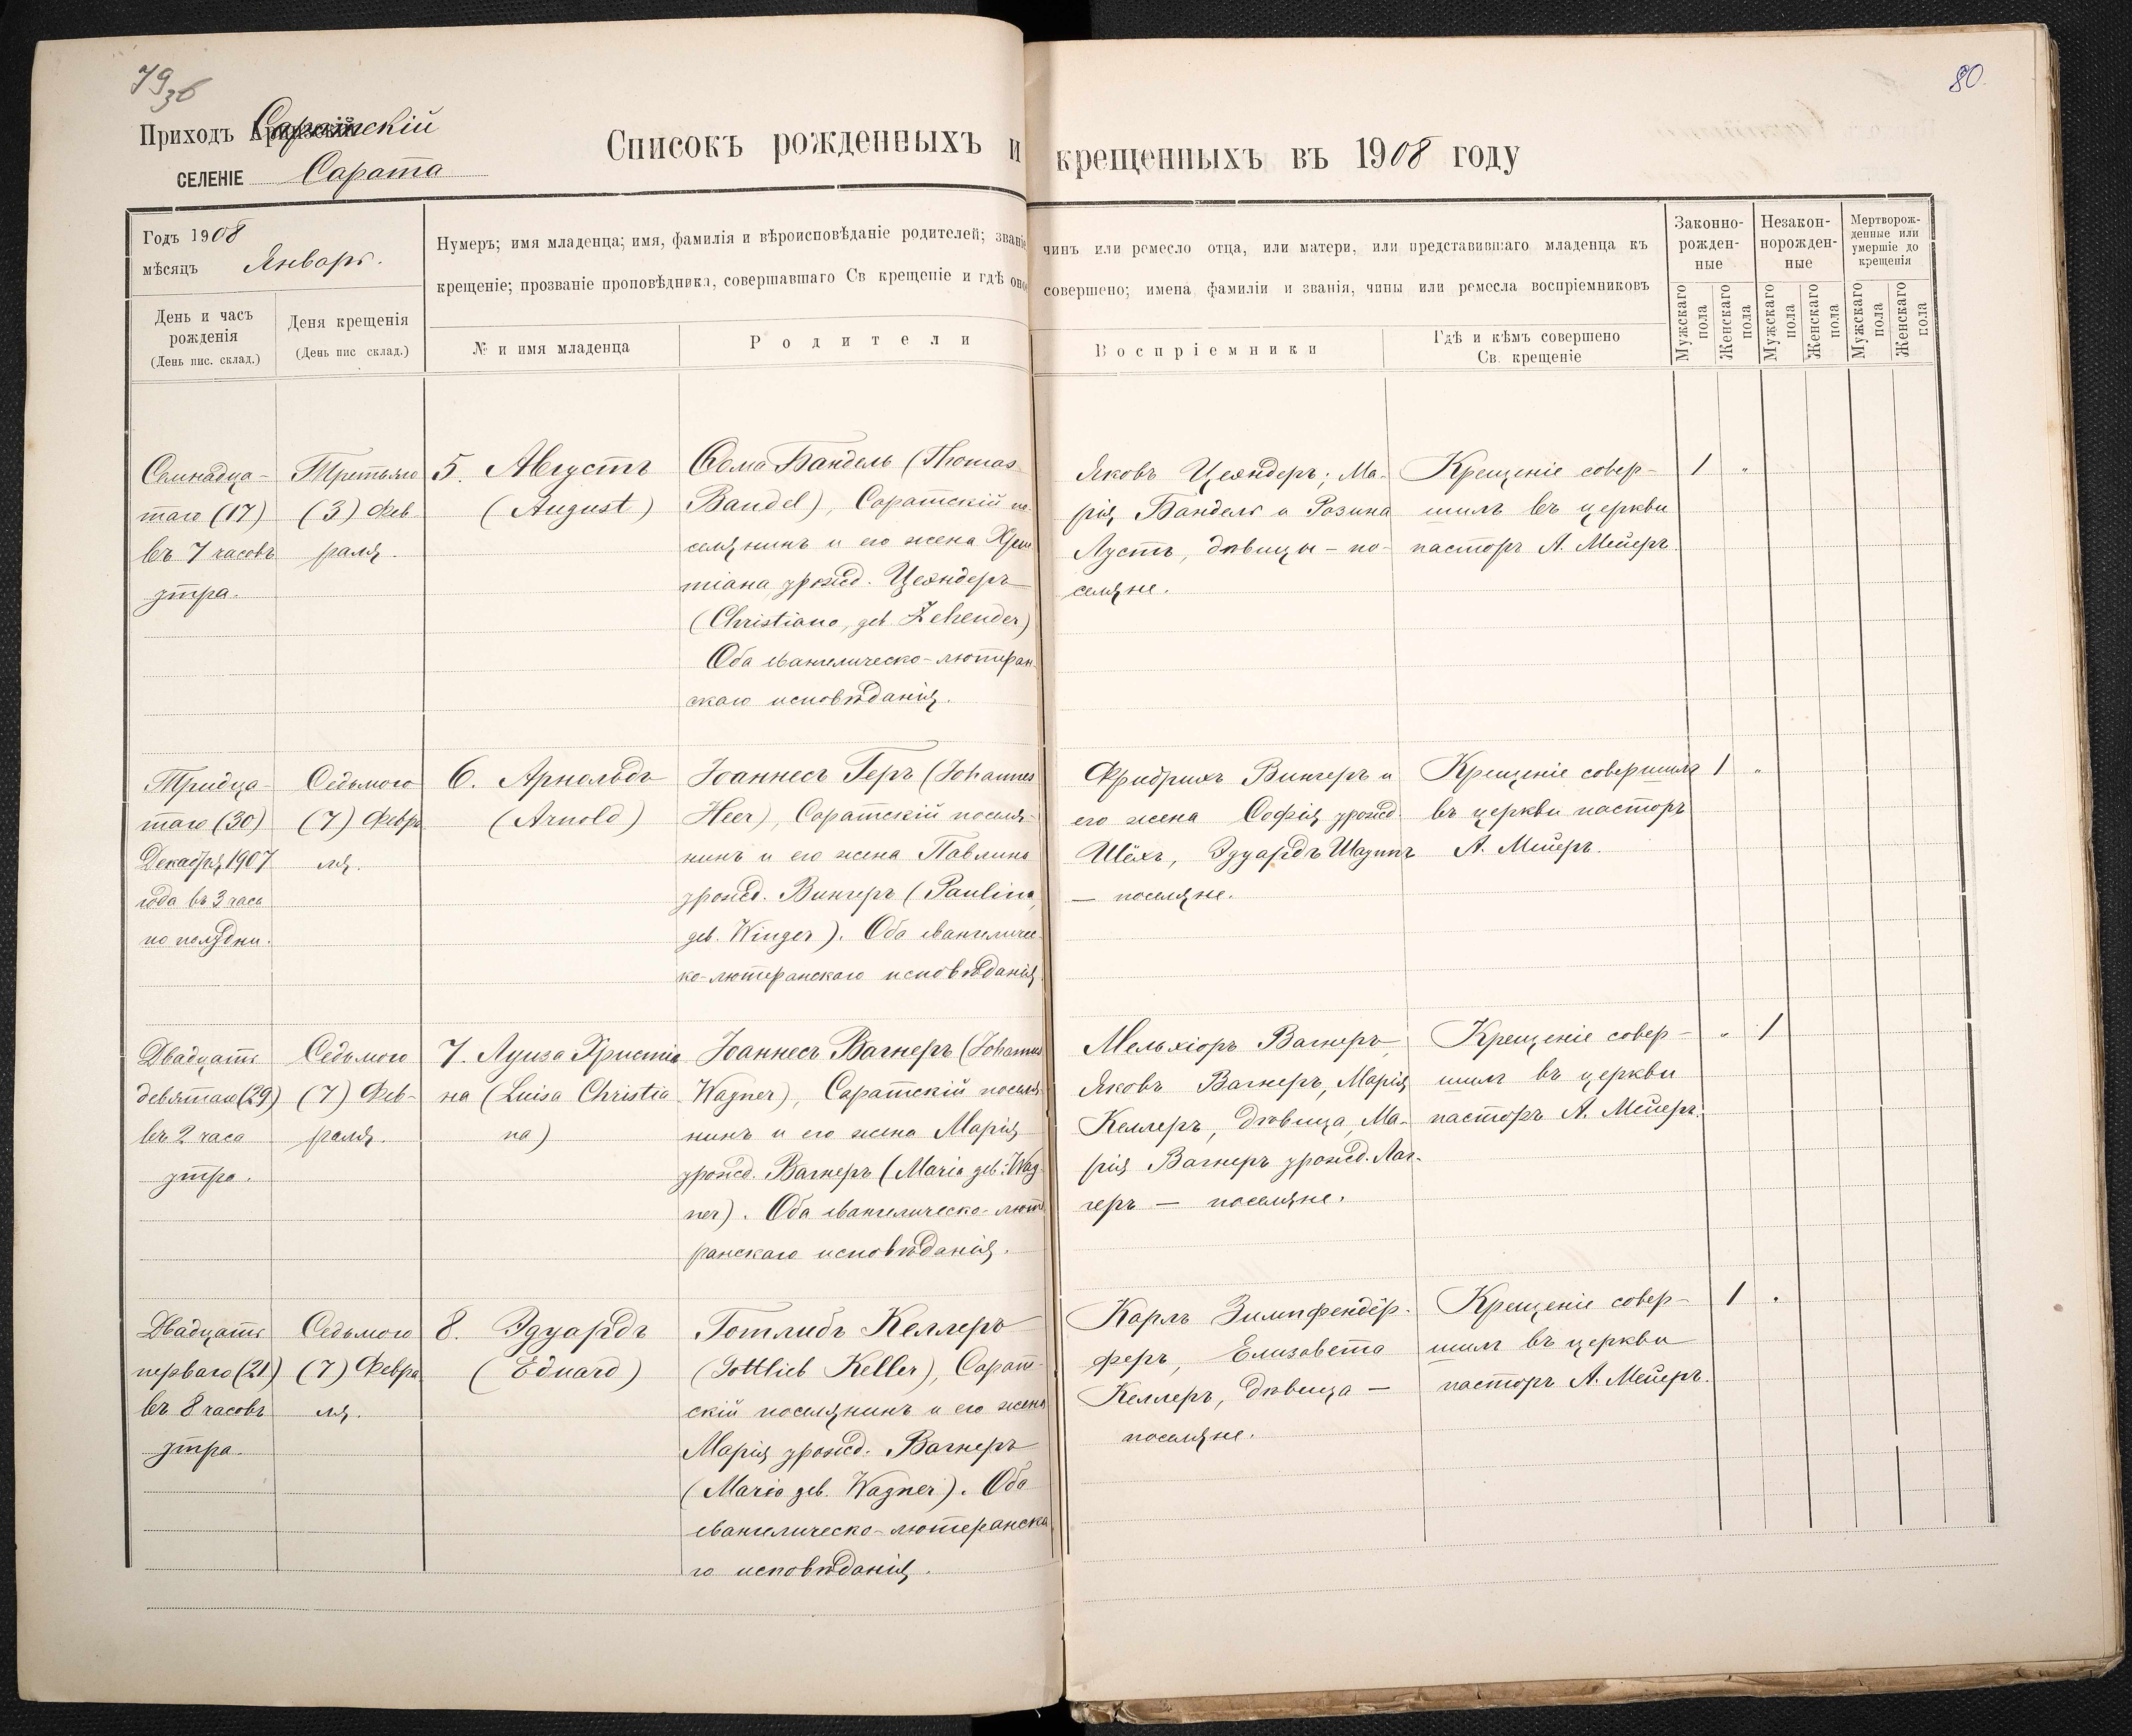 79 зв
80.
Приходъ Саратскій
СЕЛЕНІЕ Сарата
Списокъ рожденныхъ и крещенныхъ въ 1908 году
Годъ 1908
мѣсяцъ Январь.
Нумеръ; имя младенца; имя, фамилія и вѣроисповѣданіе родителей; званіе
крещеніе; прозваніе проповѣдника, совершавшаго Св крещеніе и гдѣ оно
чинъ или ремесло отца, или матери, или представившаго младенца къ
совершено; имена фамиліи и званія, чины или ремесла воспріемниковъ
Законно-
рожден-
ные
Незакон-
норожден-
ные
Мертворож-
денные или
умершіе до
крещенія
День и часъ
рожденія
(День пис. склад.)
Деня крещенія
(День пис склад.)
№ и имя младенца
Родители
Воспріемники
Гдѣ и кѣмъ совершено
Св. крещеніе
Мужскаго
пола
Женскаго
пола
Мужскаго
пола
Женскаго
пола
Мужскаго
пола
Женскаго
пола
Семнадца-
таго (17)
въ 7 часовъ
утра.
Третьяго
(3) Фев
раля.
5. Августъ
(August)
Ѳома Бандель (Thomas
Bandel), Саратскій по
селянинъ и его жена Хрис
тіана урожд. Цеэндеръ
(Christiana, geb Zehender)
Оба евангелическо-лютеран
скаго исповѣданія.
Яковъ Цеэндеръ; Ма-
рія Бандель и Розина
Лустъ, дѣвицы - по-
селяне.
Крещеніе совер-
шилъ въ церкви
пасторъ А. Мейеръ.
1 "
Тридца-
таго (30)
Декабря 1907
года въ 3 часа
по полудни.
Седьмого
(7) Февра
ля.
6. Арнольдъ
(Arnold)
Іоаннесъ Геръ (Johannes
Heer), Саратскій поселя-
нинъ и его жена Павлина
урожд. Вингеръ (Paulina,
geb. Winger). Оба евангеличес-
ко-лютеранскаго исповѣданія.
Фридрихъ Вингеръ и
его жена Софія урожд.
Шёхъ, Эдуардъ Шауппъ
— поселяне.
Крещеніе совершилъ
въ церкви пасторъ
А. Мейеръ.
1 "
Двадцать
девятаго (29)
въ 2 часа
утра.
Седьмого
(7) Фев-
раля.
7. Луиза Христіа
на (Luisa Christia
na)
Іоаннесъ Вагнеръ (Johannes
Wagner), Саратскій поселя-
нинъ и его жена Марія
урожд. Вагнеръ (Maria geb. Wag-
ner). Оба евангелическо-люте
ранскаго исповѣданія.
Мельхіоръ Вагнеръ,
Яковъ Вагнеръ, Марія
Келлеръ, дѣвица, Ма-
рія Вагнеръ урожд. Лаг-
геръ — поселяне.
Крещеніе совер-
шилъ въ церкви
пасторъ А. Мейеръ.
" 1
Двадцать
перваго (21)
въ 8 часовъ
утра.
Седьмого
(7) Февра
ля.
8. Эдуардъ
(Eduard)
Готлибъ Келлеръ
(Gottlieb Keller), Сарат-
скій поселянинъ и его жена
Марія урожд. Вагнеръ
(Maria geb. Wagner). Оба
евангелическо-лютеранска
го исповѣданія.
Карлъ Зимпфендёр-
феръ, Елизавета
Келлеръ, дѣвица —
поселяне.
Крещеніе совер-
шилъ въ церкви
пасторъ А. Мейеръ.
1 "